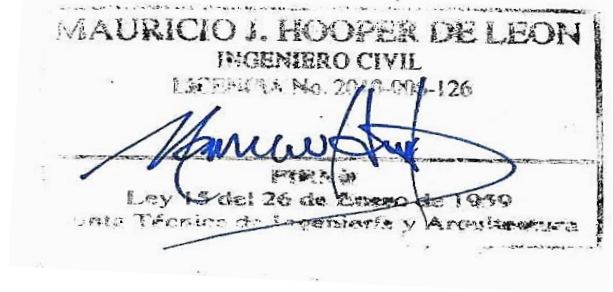 MAURICIO J. HOOPER DE LEON
INGENIERO CIVIL
LICENCIA No. 2018-006-126
FIRMA
Ley 15 del 26 de Enero de 1959
Técnica de Ingeniería y Arquitectura